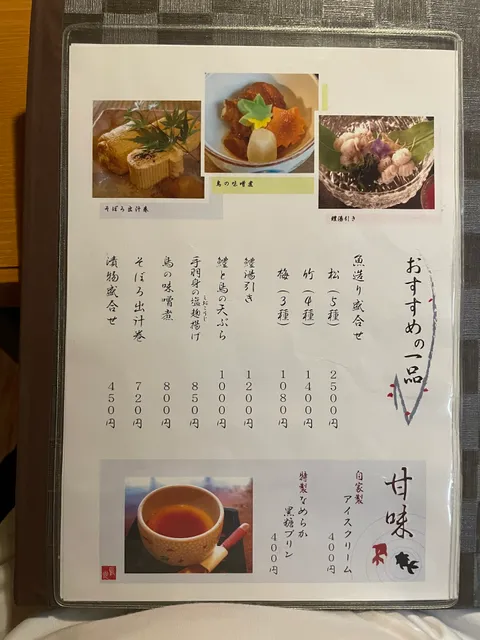 そぼろ出汁巻
鳥の味噌煮
鱧湯引き
おすすめの一品
魚造り盛合せ
松(5種) 2500円
竹(4種) 1400円
梅(3種) 1080円
鱧湯引き 1200円
鱧と鳥の天ぷら 1000円
手羽身の塩麹揚げ 850円
鳥の味噌煮 800円
そぼろ出汁巻 720円
漬物盛合せ 450円
甘味
自家製
アイスクリーム 400円
特製なめらか
黒糖プリン 400円